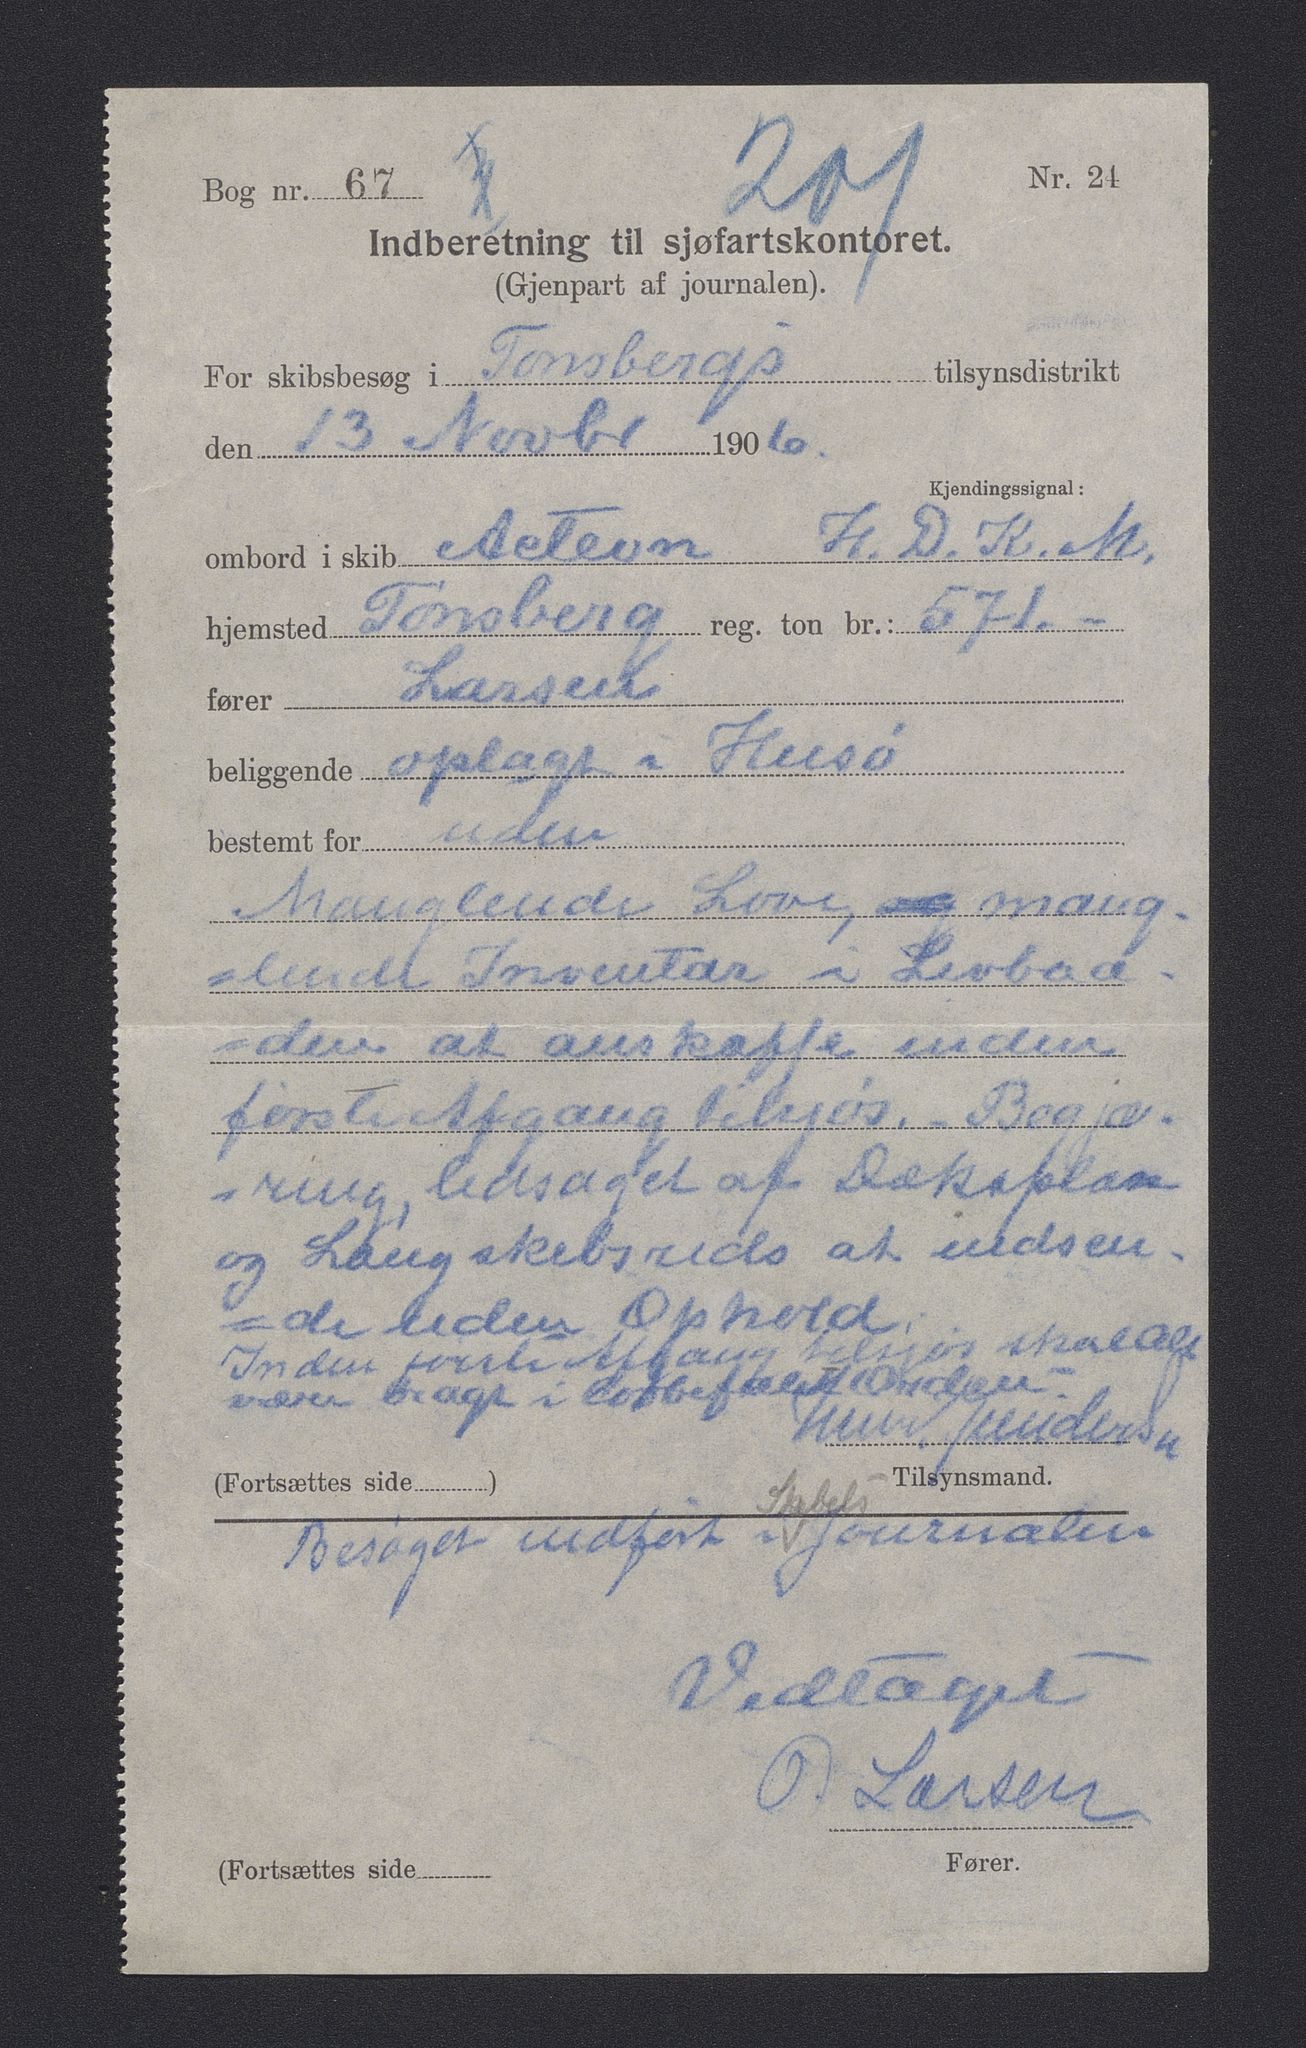 Bog nr. 67 Nr. 24
Indberetning til sjøfartskontoret.
(Gjenpart af journalen).
For skibsbesøg i Tønsbergs tilsynsdistrikt
den 13 Novbr 1906.
Kjendingssignal:
ombord i skib Acteon H. D. K. M.
hjemsted Tønsberg reg. ton br.: 571. -
fører Larsen
beliggende oplagt i Husø
bestemt for uden
Manglende Love, og mang-
=lende Inventar i Livbaa-
=den at anskaffe inden
første Afgang tilsjøs. - Begjæ-
=ring, ledsaget af Dæksplan
og Langskibsrids at indsen-
=de uden Ophold.
Inden første Afgang tilsjøs skal Alt
være bragt i lovbefalet Orden -
Tilsynsmand.
(Fortsættes side )
Skibs
Besøget indført i Journalen
Vedtaget
O. Larsen
Fører.
(Fortsættes side